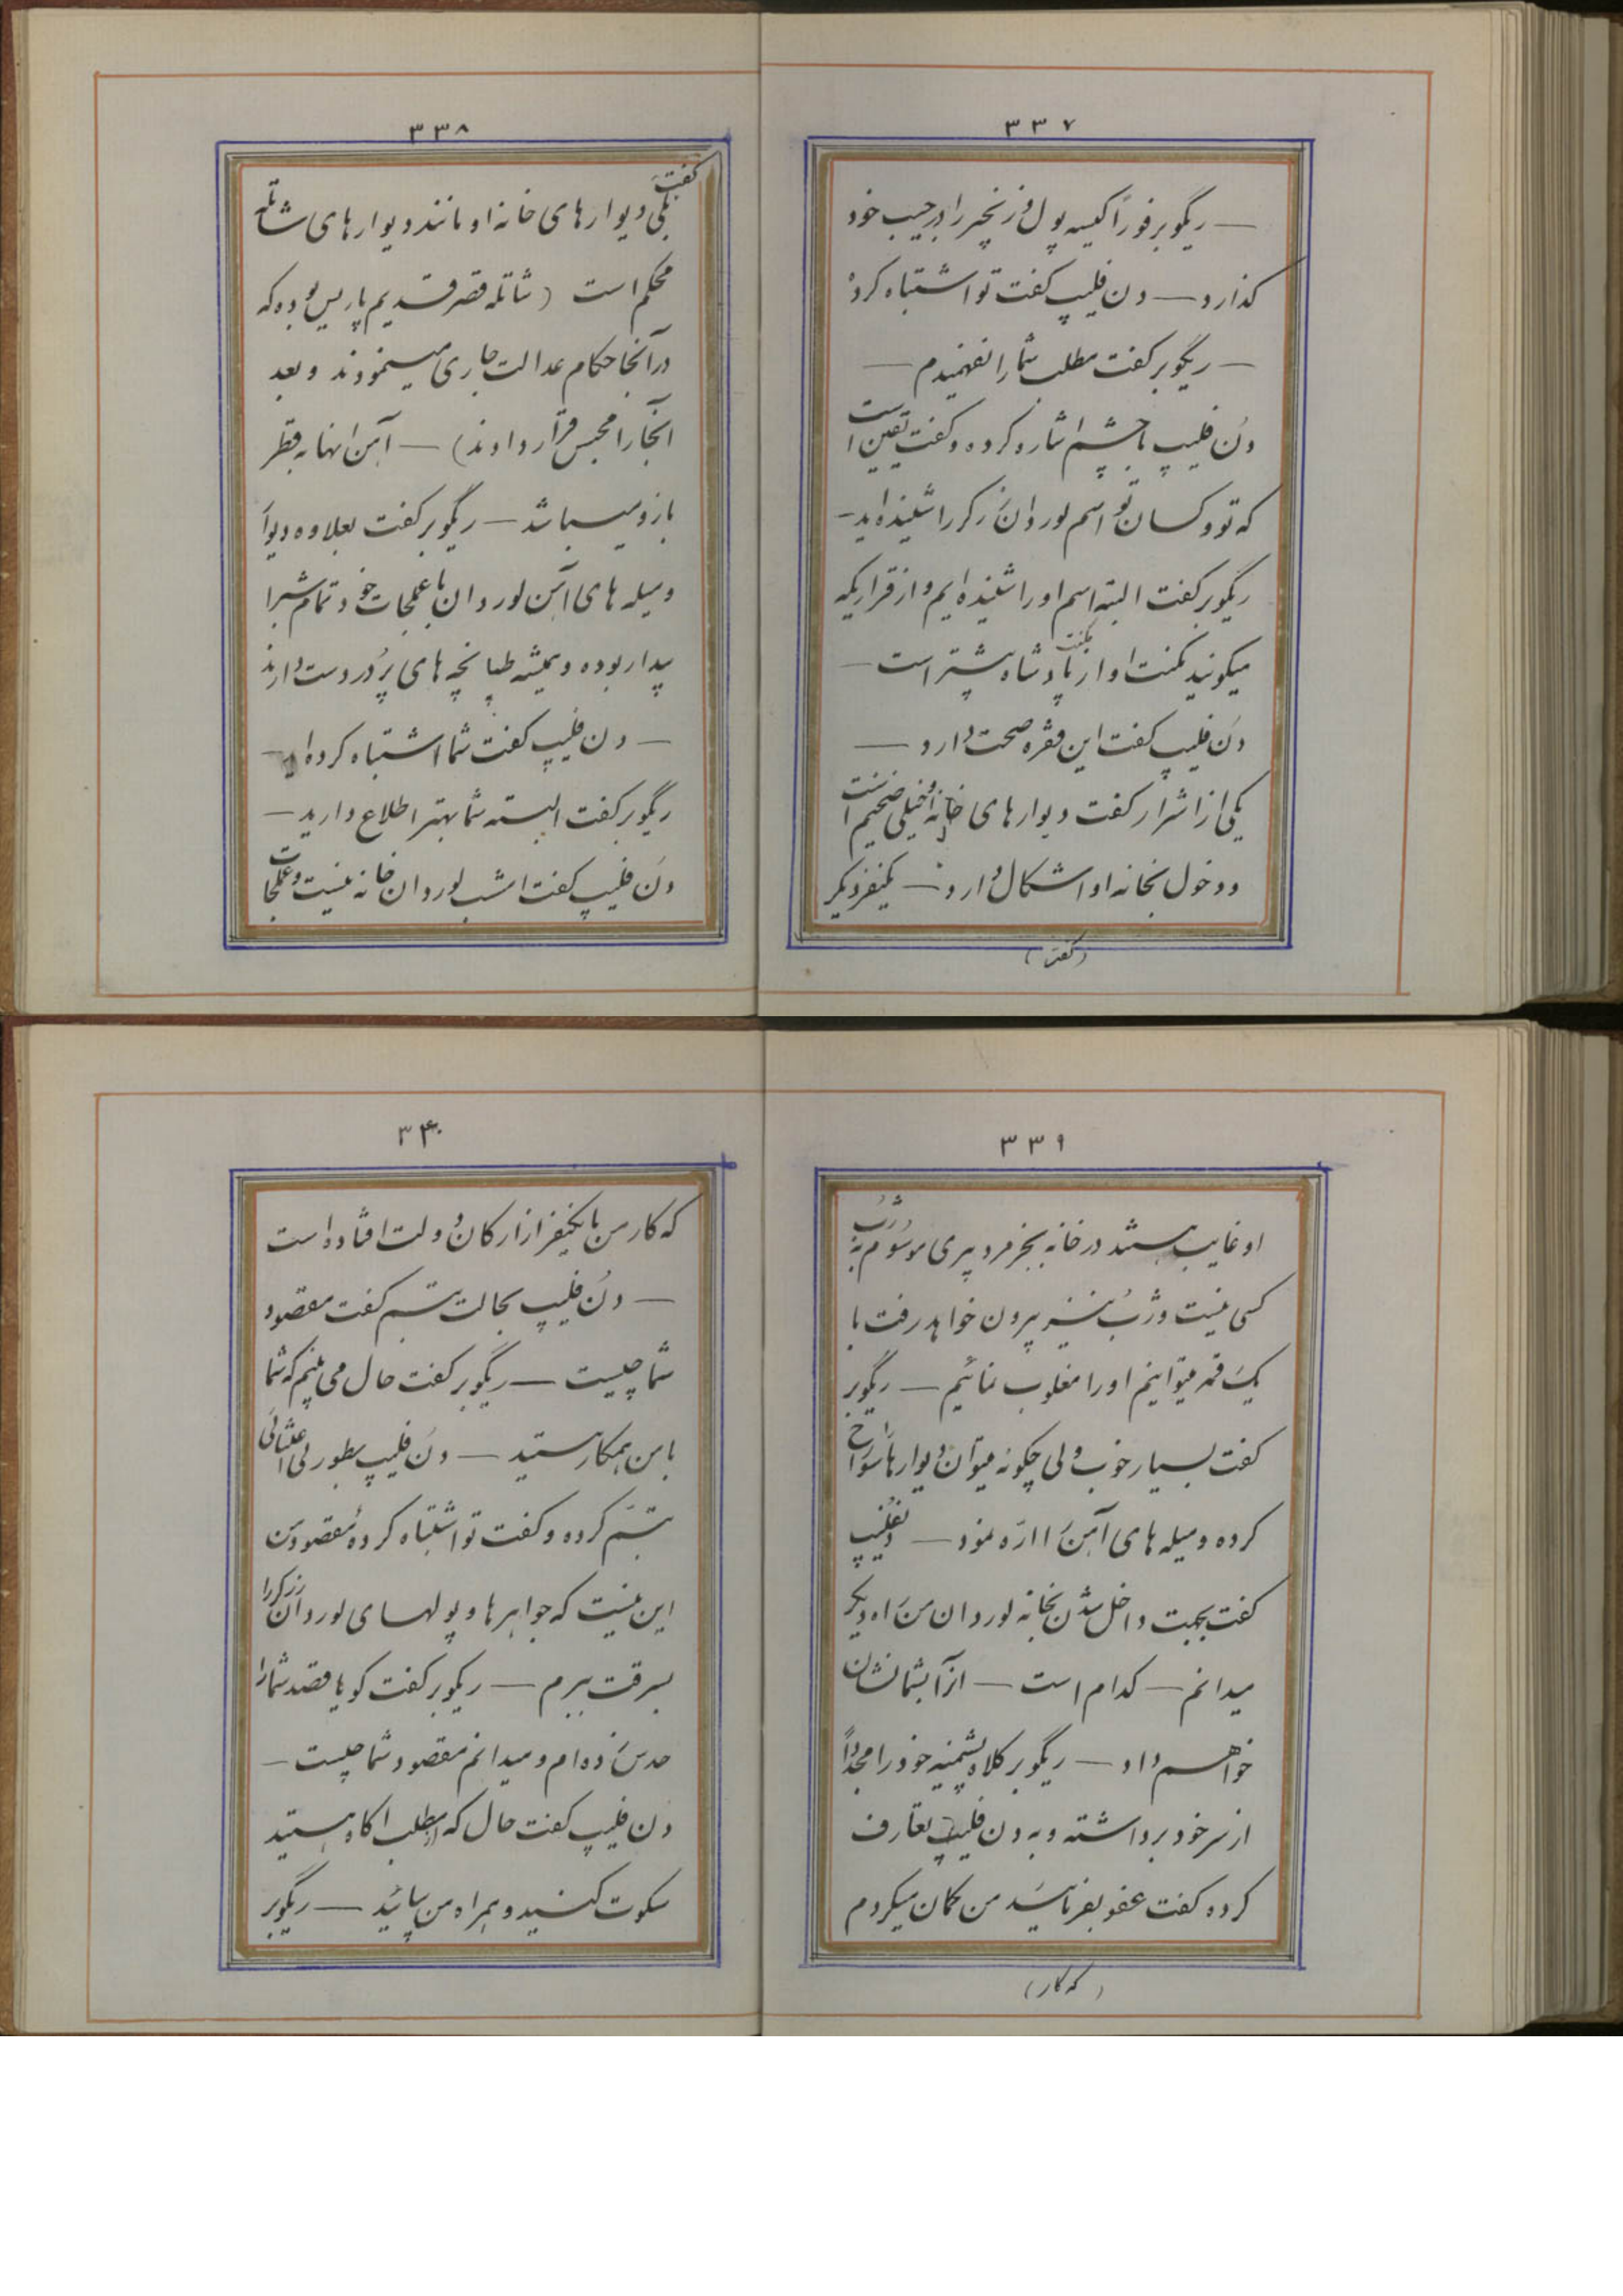 ۳۳۷
— ریگوبر فوراً کیسه پول و زنجیر را در جیب خود
گذارد — دن فلیپ گفت تو اشتباه کردهٔ
— ریگوبر گفت مطلب شما را نفهمیدم —
دن فلیپ با چشم اشاره کرده و گفت یقین است
که تو و کسان تو اسم لوردان زرگر را شنیده‌اید —
ریگوبر گفت البته اسم او را شنیده‌ایم و از قراریکه
میگویند مکنت او از مکنت پادشاه بیشتر است —
دن فلیپ گفت این فقره صحت دارد —
یکی از اشرار گفت دیوارهای خانه او خیلی ضخیم است
و دخول بخانه او اشکال دارد — یکنفر دیگر
(گفت)
۳۳۸
گفت
بلی دیوارهای خانه او مانند دیوارهای شاتله
محکم است (شاتله قصر قدیم پاریس بوده که
در آنجا حکام عدالت جاری مینمودند و بعد
آنجا را محبس قرار دادند) — آهن انها به قطر
بازو میباشد — ریگوبر گفت بعلاوه دیوار
و میله های آهن لوردان با عملجات خود تمام شب را
بیدار بوده و همیشه طپانچه های پر در دست دارند
— دن فلیپ گفت شما اشتباه کرده اید —
ریگوبر گفت البته شما بهتر اطلاع دارید —
دن فلیپ گفت امشب لوردان خانه نیست و عملجات
۳۳۹
او غایب هستند در خانه بجز مرد پیری موسوم به ژرب
کسی نیست و ژرب نیز بیرون خواهد رفت با
یک قمه میتوانیم او را مغلوب نمائیم — ریگوبر
گفت بسیار خوب ولی چگونه میتوان دیوارها سوراخ
کرده و میله های آهن را ارّه نمود — دن فلیپ
گفت بجهت داخل شدن بخانه لوردان من راه دیگر
میدانم — کدام است — از آن بشما نشان
خواهم داد — ریگوبر کلاه پشمینه خود را مجدداً
از سر خود برداشته و به دن فلیپ تعارف
کرده گفت عفو بفرمائید من گمان میکردم
(که کار)
۳۴۰
که کار من با یکنفر از ارکان دولت افتاده است
— دن فلیپ بحالت تبسم گفت مقصود
شما چیست — ریگوبر گفت حال می بینم که شما
با من همکار هستید — دن فلیپ بطور بی اعتنائی
تبسّم کرده و گفت تو اشتباه کردهٔ مقصود من
این نیست که جواهرها و پولهای لوردان زرگر را
بسرقت ببرم — ریگوبر گفت گویا قصد شما را
حدس زده‌ام و میدانم مقصود شما چیست —
دن فلیپ گفت حال که از مطلب اگاه هستید
سکوت کنید و همراه من بیائید — ریگوبر